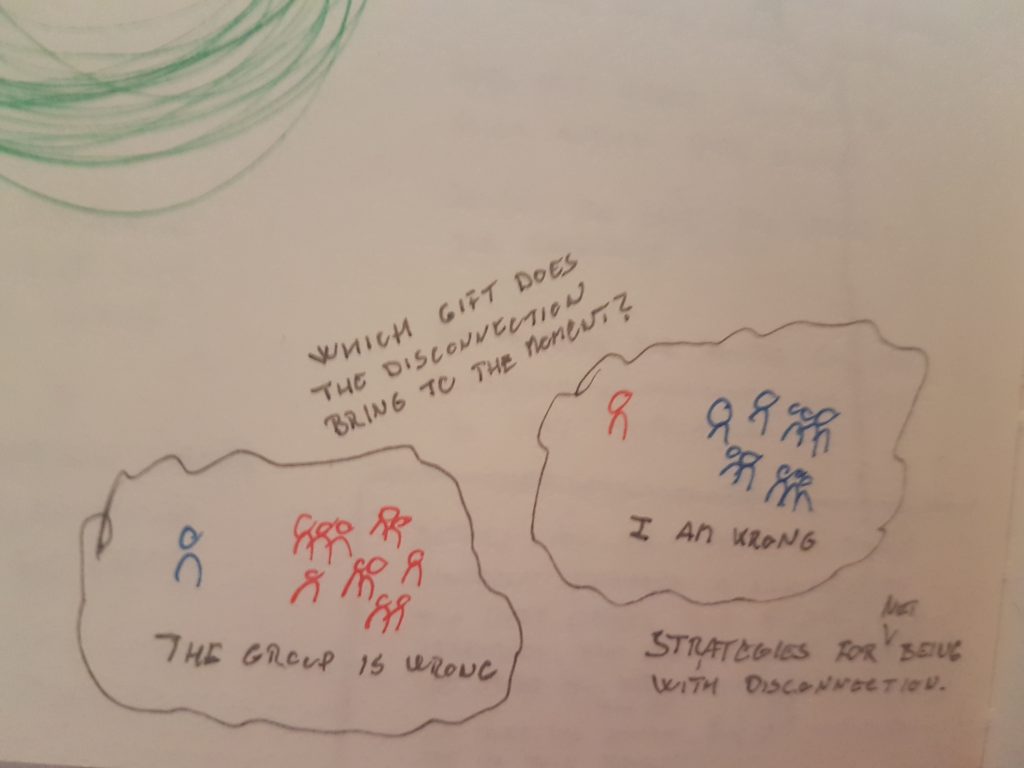 WHICH GIFT DOES
THE DISCONNECTION
BRING TO THE MOMENT?
I AM WRONG
THE GROUP IS WRONG
NOT
STRATEGIES FOR BEING
WITH DISCONNECTION.